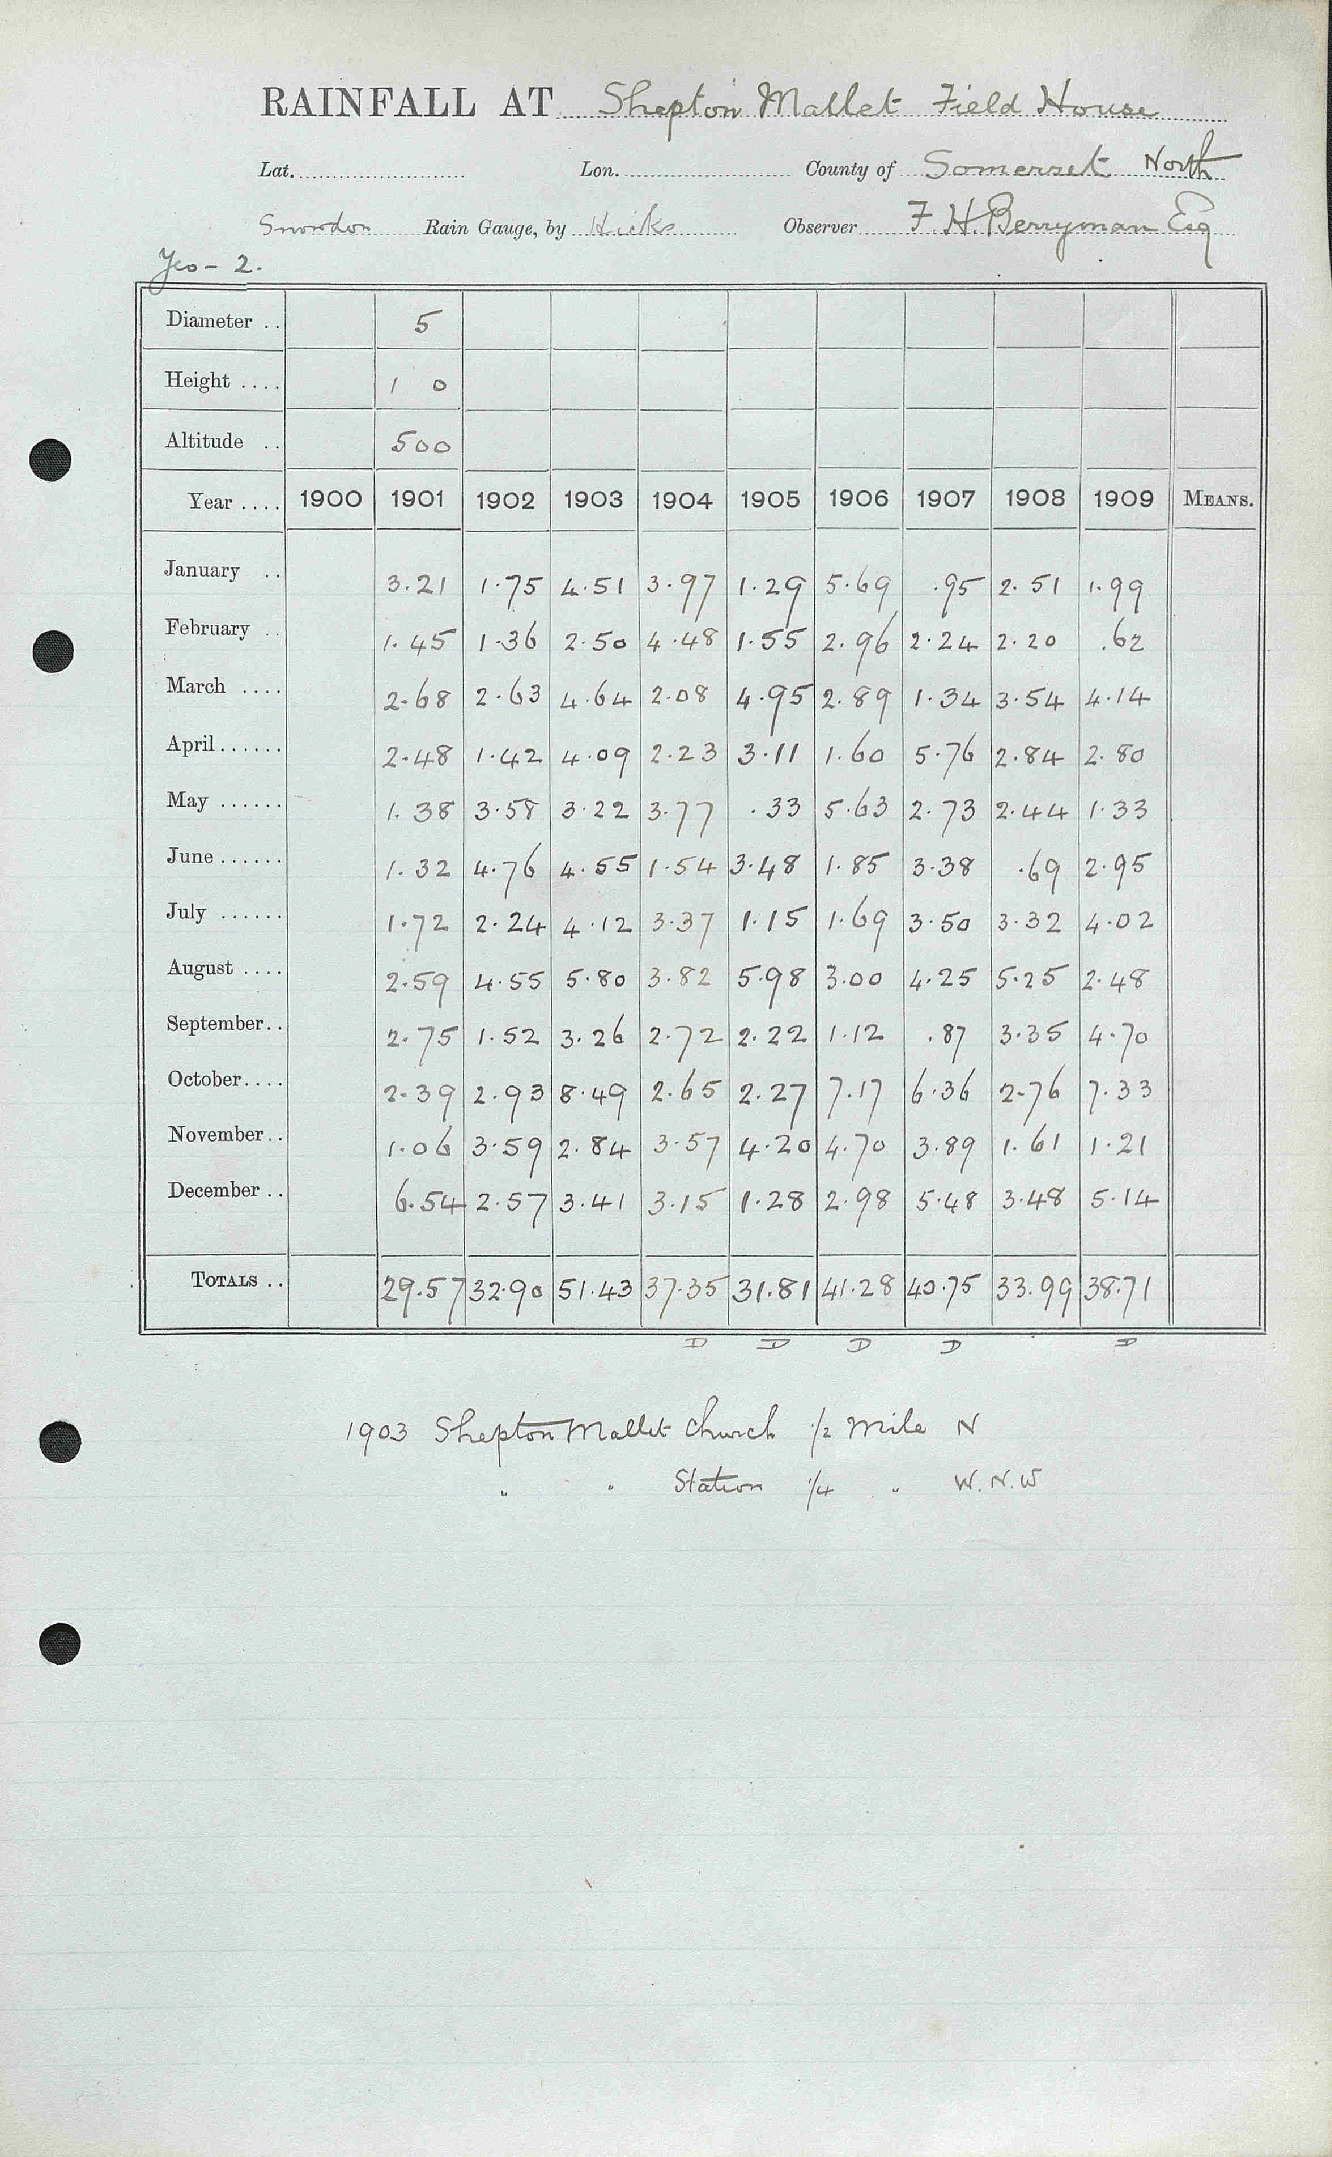 RAINFALL AT Shepton Mallet Field House
Lat. Lon. County of Somerset North
Snowdon Rain Gauge, by Hicks Observer F. H. Berryman Esq
Yeo - 2.
Diameter .. 5
Height .... 1 0
Altitude .. 500
Year .... 1900 1901 1902 1903 1904 1905 1906 1907 1908 1909 MEANS.
January .. 3.21 1.75 4.51 3.97 1.29 5.69 .95 2.51 1.99
February .. 1.45 1.36 2.50 4.48 1.55 2.96 2.24 2.20 .62
March .... 2.68 2.63 4.64 2.08 4.95 2.89 1.34 3.54 4.14
April ...... 2.48 1.42 4.09 2.23 3.11 1.60 5.76 2.84 2.80
May ...... 1.38 3.58 3.22 3.77 .33 5.63 2.73 2.44 1.33
June ...... 1.32 4.76 4.55 1.54 3.48 1.85 3.38 .69 2.95
July ...... 1.72 2.24 4.12 3.37 1.15 1.69 3.50 3.32 4.02
August .... 2.59 4.55 5.80 3.82 5.98 3.00 4.25 5.25 2.48
September.. 2.75 1.52 3.26 2.72 2.22 1.12 .87 3.35 4.70
October.... 2.39 2.93 8.49 2.65 2.27 7.17 6.36 2.76 7.33
November.. 1.06 3.59 2.84 3.57 4.20 4.70 3.89 1.61 1.21
December .. 6.54 2.57 3.41 3.15 1.28 2.98 5.48 3.48 5.14
TOTALS .. 29.57 32.90 51.43 37.35 31.81 41.28 40.75 33.99 38.71
D D D D D
1903 Shepton Mallet Church 1/2 Mile N
" " Station 1/4 " W.N.W